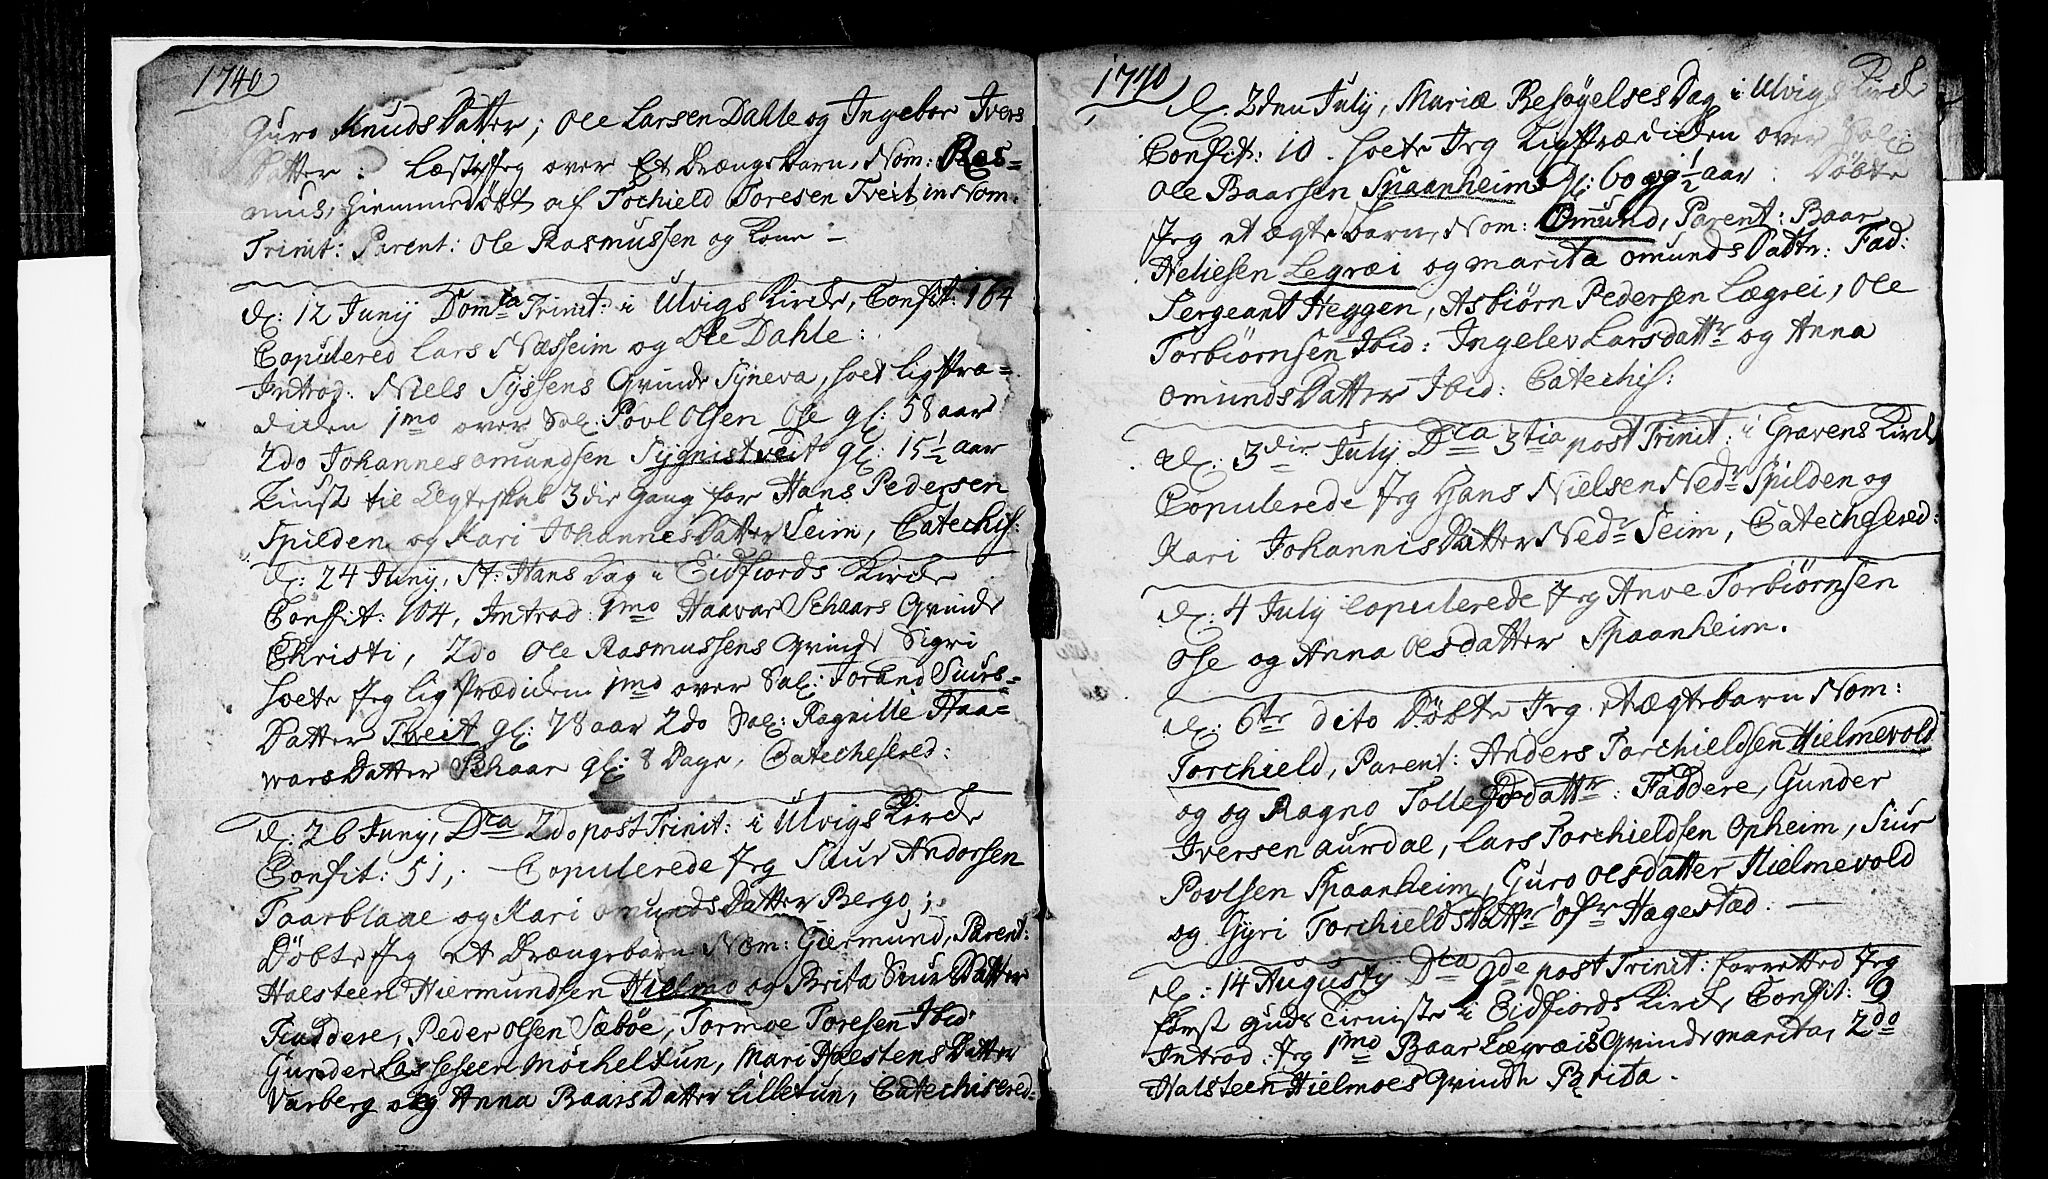 1740
Guro KnudsDatter; Ole Larsen Dahle og Ingebor Ivers
Datter: Læste Jeg over Et Drængebarn, Nom: Ras=
mus, hiemmedøbt af Torchield Toresen Tveit in Nom:
Trinit: Parent: Ole Rasmussen og Kone —
d: 12 Junij Domca Trinit: i Ulvigs Kirche, Confit: 164
Copulered Lars Næsseim og Ole Dahle:
Introd: Niels Syssens Qvinde Syneva, holt ligPræ=
dichen 1mo over Sal: Povl Olsen Ose gl: 58 aar
2do Johannes omundsen Sygnistveit gl: 15 1/2 aar
Liust til Ægteskab 3die gang for Hans Pedersen
Spilden og Kari JohannesDatter Seim, Catechis:
d: 24 Junij, St: Hans Dag i Eidfiords Kirche
Confit: 104, Introd: 1mo Haavar Schaars Qvinde
Christi, 2do Ole Rasmussens Qvinde Sigri
holte Jeg ligPrædichen 1mo over Sal: Torand Siurs=
Datter Tveit gl: 78 aar 2do Sal: Ragnille Haa=
warsDatter Schaar gl: 8 Dage, Catechesered:
d: 26 Junij, Dca 2do post Trinit: i Ulvigs Kirche
Confit: 51, — Copulerede Jeg Siur Andorsen
Taarblaae og Kari omundsDatter Bergo;
Døbte Jeg et Drængebarn Nom: Giermund, Parent:
Halsteen Hiermundsen Hielmo og Brita SiurDatter
Faddere, Peder olsen Sæbøe, Tormoe Toresen Ibid:
Gunder Lassesen Møcheltun, Mari HalstensDatter
Varberg og Anna BaarsDatter Lilletun, Catechisered=
1740
8
d: 2den July, Mariæ BesøyelsesDag i Ulvigs Kirche
Confit: 10. holte Jeg LigPrædichen over Sal:
Ole Baarsen Spaanheim gl: 60 og 1/2 aar. Døbte
Jeg et ægte barn, Nom: Omund, Parent: Baar
Heliesen Legræi og marita omundsDattr: Fad:
Sergeant Heggen, Asbiørn Pedersen Lægrei, Ole
Torbiørnsen Ibid: Ingelev Larsdattr og Anna
omundsDatter Ibid: Catechis:
d: 3die July Dca 3tia post Trinit: i Gravens Kirche
Copulerede Jeg Hans Nielsen Nedr Spilden og
Kari JohannisDatter Nedr Seim, Catechesered:
d: 4 July Copulerede Jeg Anve Torbiørnsen
Ose og Anna olsdatter Spaanheim.
d: 6te dito Døbte Jeg et ægtebarn Nom:
Torchield, Parent: Anders Torchieldsen Hielmevold
og og Ragno Tollefsdattr: Faddere, Gunder
Iversen aurdal, Lars Torchieldsen Opheim, Siur
Povlsen Spaanheim, Guro olsdatter Hielmevold
og Gyri TorchieldsDattr ofr Hagestad. —
d: 14 Augusty Dca 9de post Trinit: forretted Jeg
først Guds Tieniste i Eidfiords Kirche Confit: 9
Introd: Jeg 1mo Baar Lægræis Qvinde marita, 2do
Halsteen Hielmoes Qvinde Brita.